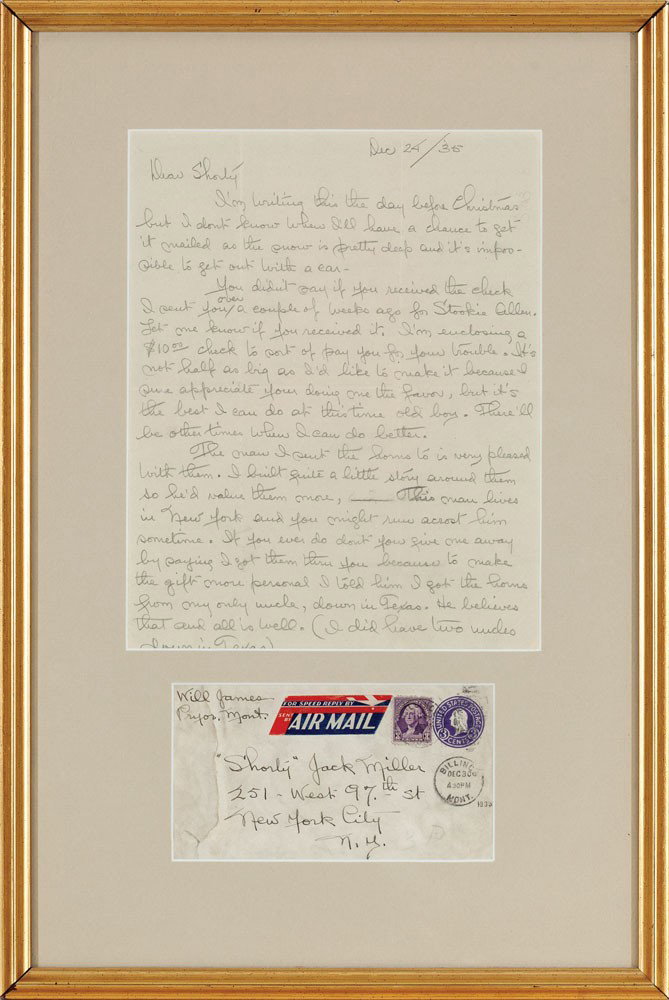 Dec 24/35
Dear Shorty
I'm writing this the day before Christmas
but I dont know when I'll have a chance to get
it mailed as the snow is pretty deep and it's impos-
sible to get out with a car-
You didn't say if you received the check
I sent you over a couple of weeks ago for Stookie Allen.
Let me know if you received it. I'm enclosing a
$10.00 check to sort of pay you for your trouble. It's
not half as big as I'd like to make it because I
sure appreciate your doing me the favor, but it's
the best I can do at this time old boy. There'll
be other times when I can do better.
The man I sent the horns to is very pleased
with them. I built quite a little story around them
so he'd value them more, —— This man lives
in New York and you might run acrost him
sometime. If you ever do dont you give me away
by saying I got them thru you because to make
the gift more personal I told him I got the horns
from my only uncle, down in Texas. He believes
that and all's well. (I did have two uncles
down in Texas)
Will James
Pryor, Mont.
FOR SPEED REPLY BY
SENT BY
AIR MAIL
UNITED STATES POSTAGE
3 CENTS 3
"Shorty" Jack Miller
251 - West 97th - St
New York City
N. Y.
BILLINGS
DEC 30
4 30 PM
MONT.
1935